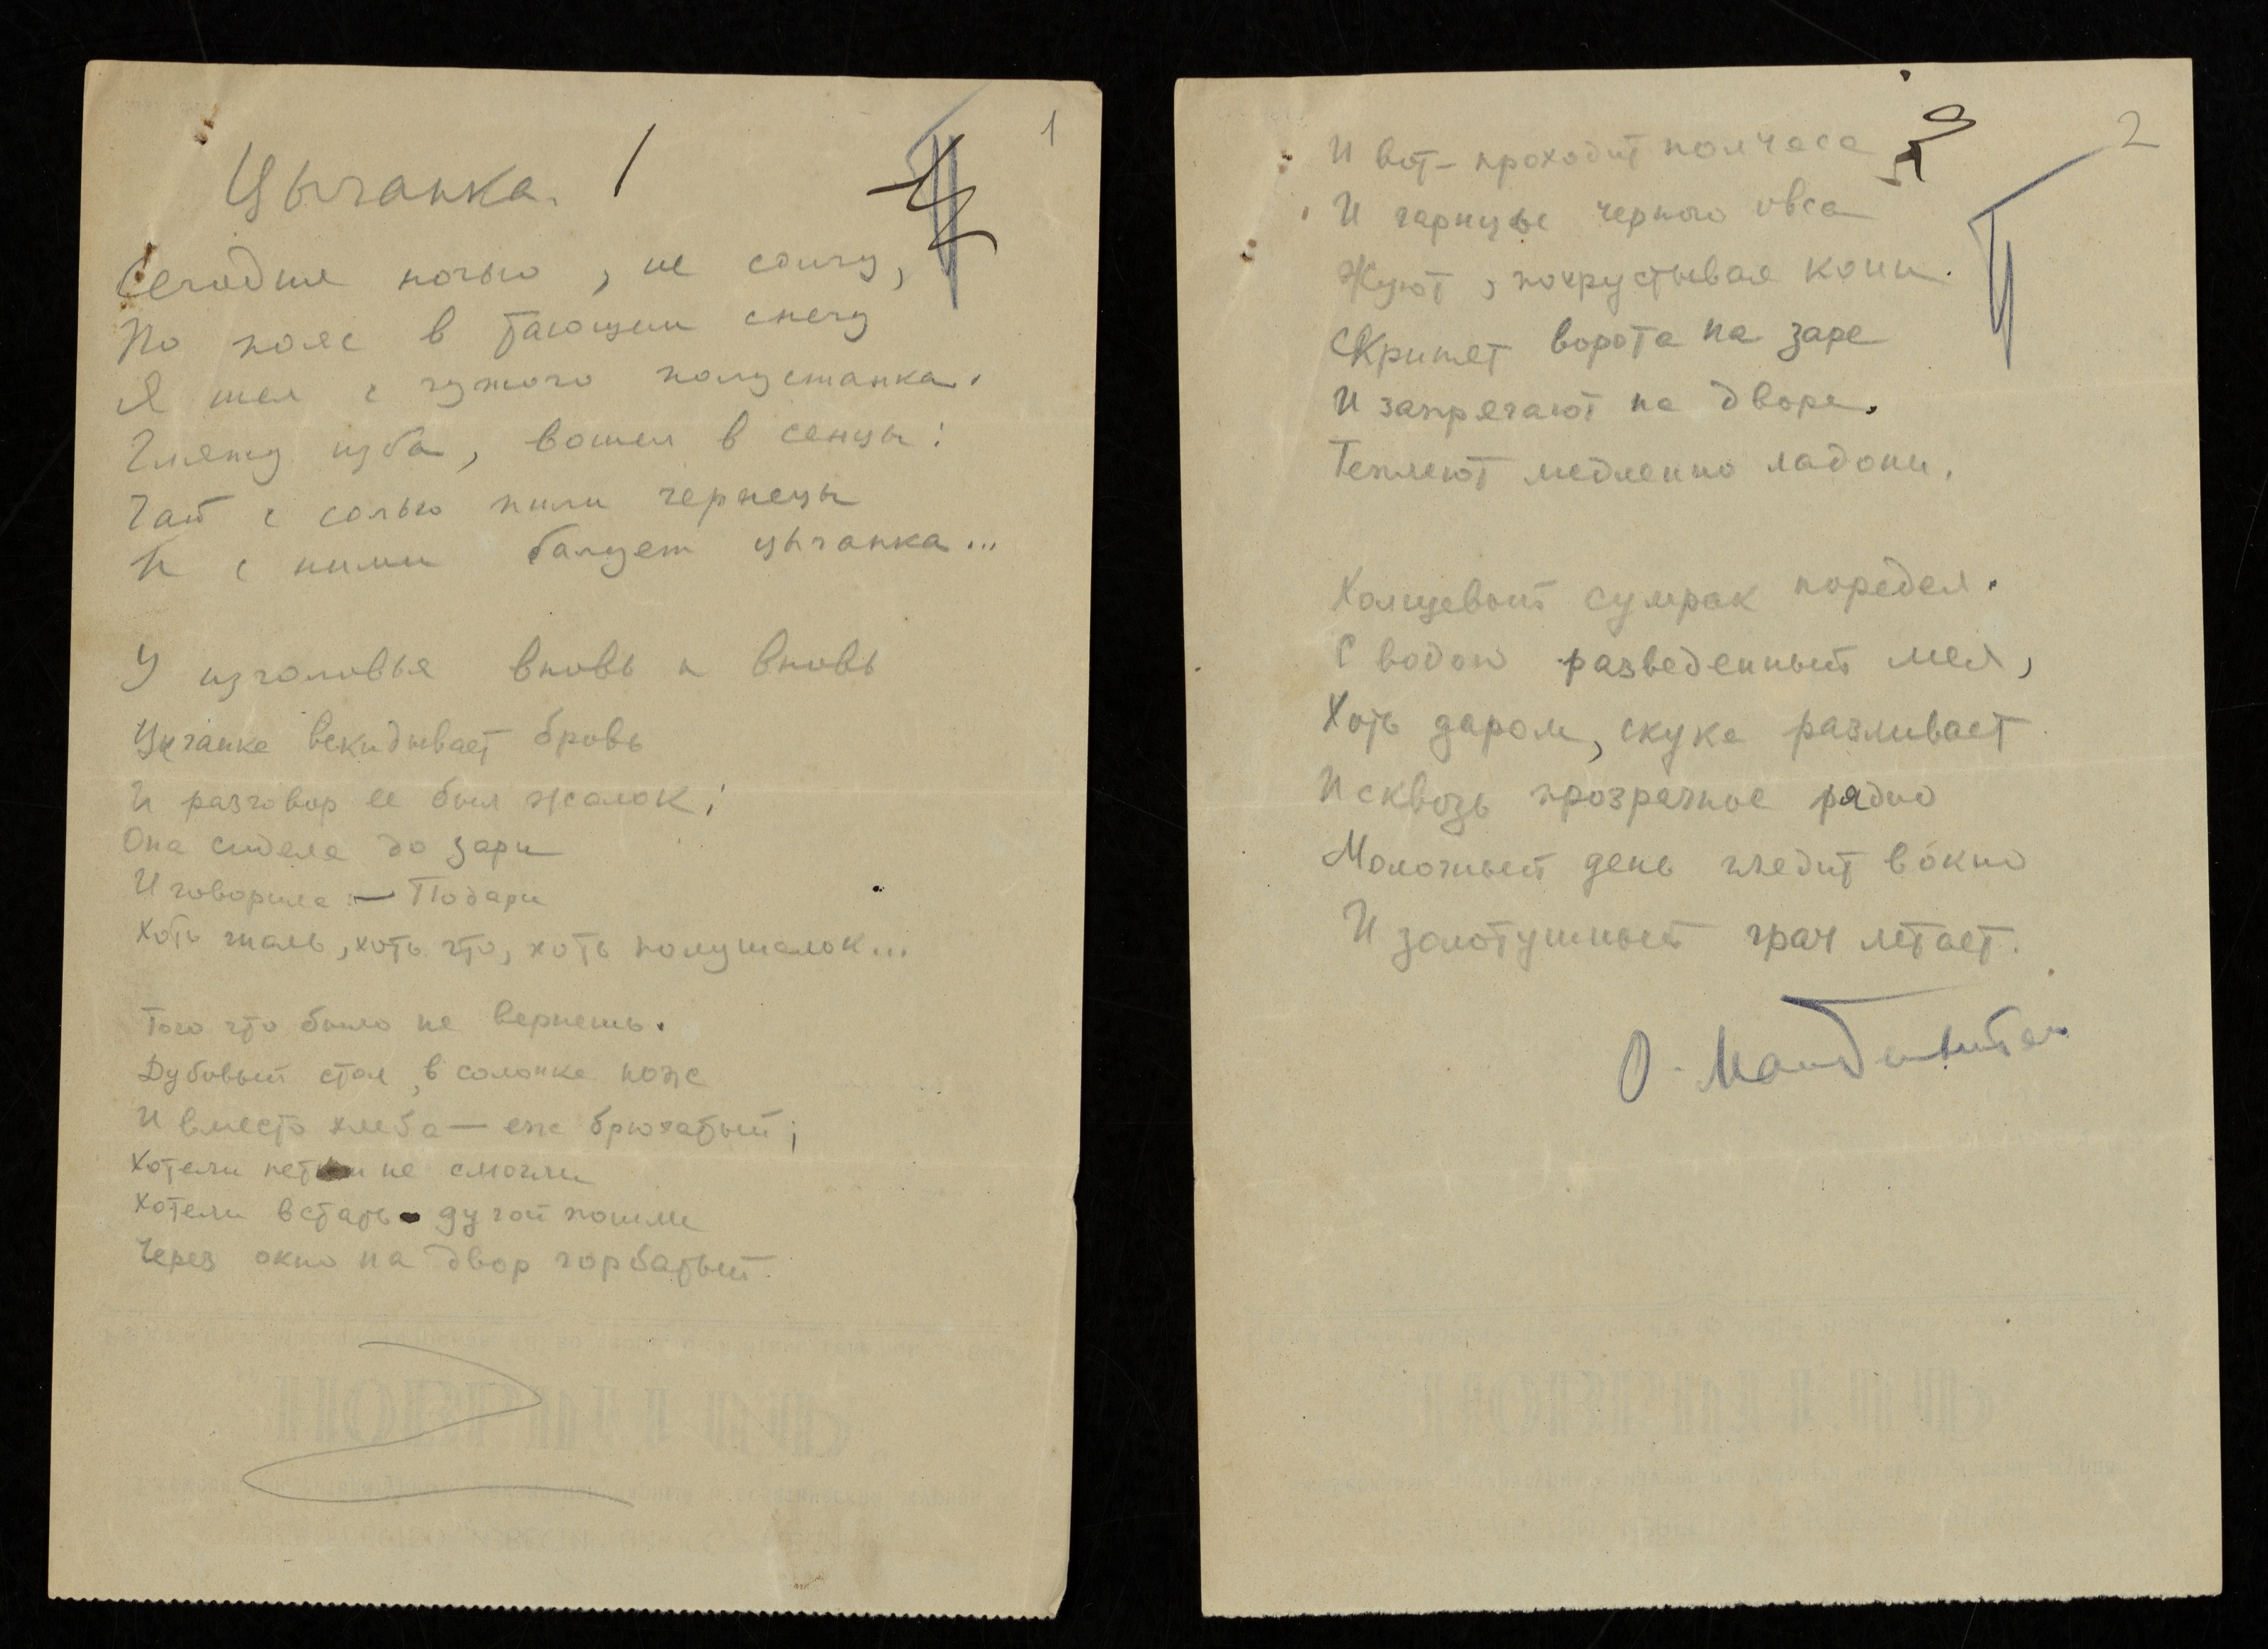 1
Цыганка.
Сегодня ночью, не солгу,
По пояс в тающем снегу
Я шел с чужого полустанка.
Гляжу изба, вошел в сенцы:
Чай с солью пили чернецы
И с ними балует цыганка...
У изголовья вновь и вновь
Цыганка вскидывает бровь
И разговор ее был жалок;
Она сидела до зари
И говорила — Подари
Хоть шаль, хоть что, хоть полушалок...
Того что было не вернешь.
Дубовый стол, в солонке нож
И вместо хлеба — еж брюхатый;
Хотели петь и не смогли
Хотели встать дугой пошли
Через окно на двор горбатый.
2
И вот — проходит полчаса
И гарнцы черного овса
Жуют, похрустывая кони.
Скрипят ворота на заре
И запрягают на дворе.
Теплеют медленно ладони.
Холщевый сумрак поредел.
С водою разведенный мел,
Хоть даром, скука разливает
И сквозь прозрачное рядно
Молочный день глядит в окно
И золотушный грач летает.
О. Мандельштам